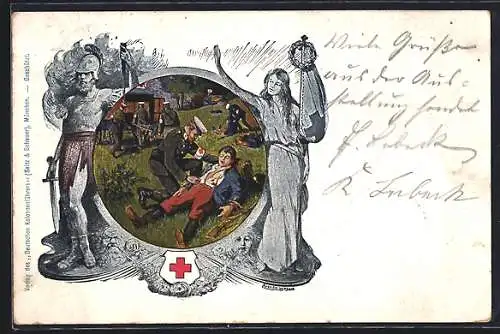 Viele Grüße
aus der Aus-
stellung sendet
F. Lubeck
K. Lubeck
Verlag des „Deutschen Kolonnenführers“ (Seitz & Schauer), München. — Geschützt.